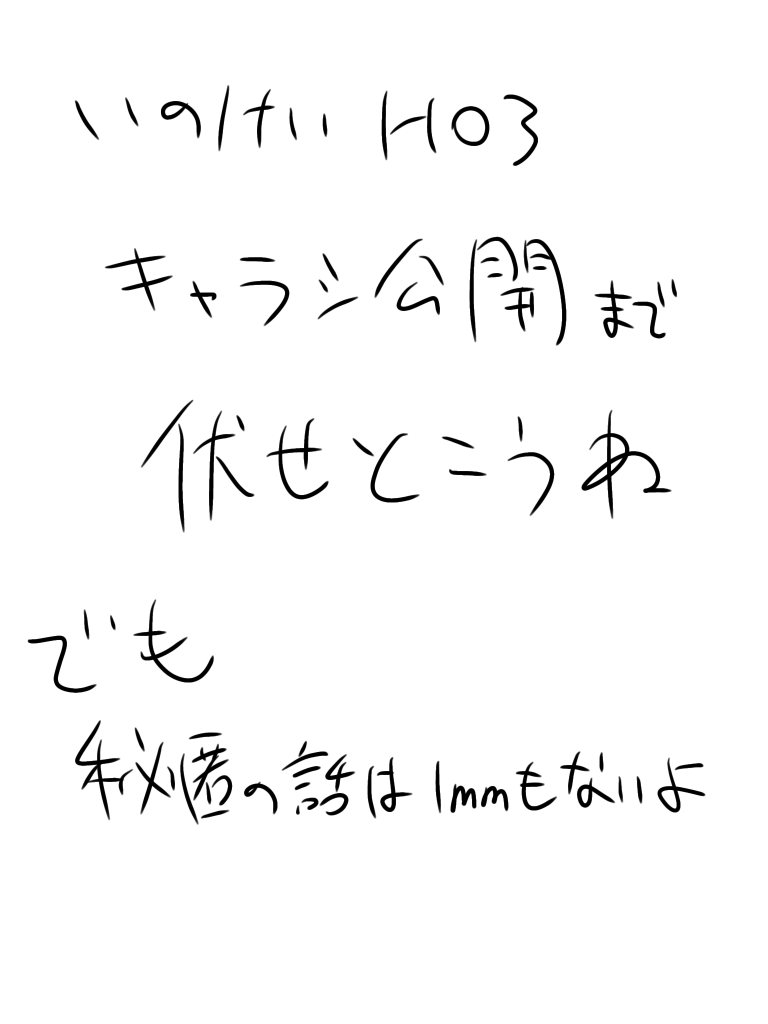 いのけい HO3
キャラシ公開まで
伏せとこうね
でも
秘匿の話は1mmもないよ